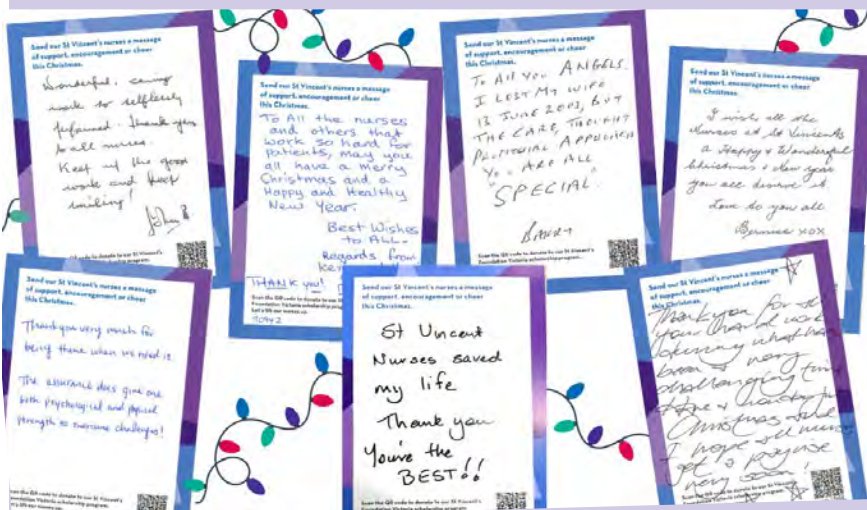 Send our St Vincent's nurses a message
of support, encouragement or cheer
this Christmas.
Wonderful, caring
work so selflessly
performed. Thank you
to all nurses.
Keep up the good
work and keep
smiling!
Send our St Vincent's nurses a message
of support, encouragement or cheer
this Christmas.
To All the nurses
and others that
work so hard for
patients, may you
all have a merry
Christmas and a
Happy and Healthy
New Year.
Best Wishes
to ALL.
Regards from
THANK you!
Scan the QR code to donate to our St
Foundation Victoria scholarship
Send our St Vincent's nurses a message
of support, encouragement or cheer
this Christmas.
To All You ANGELS.
I LOST MY WIFE
13 JUNE 2003, BUT
THE CARE, THOUGHT
APPROACH
YOU ARE ALL
"SPECIAL".
Scan the QR code to donate to our St Vincent's
Foundation Victoria scholarship program.
Send our St Vincent's nurses a message
of support, encouragement or cheer
this Christmas.
I wish all the
Nurses at St Vincents
a Happy & Wonderful
Christmas & New year
you all deserve it
Love to you all
Bernice xox
Send our St Vincent's nurses a message
of support, encouragement or cheer
this Christmas.
Thank you very much for
being there when we need it
The assurance does give one
both psychological and physical
strength to overcome challenges!
Scan the QR code to donate to our St Vincent's
Foundation Victoria scholarship program.
Send our St Vincent's nurses a message
of support, encouragement or cheer
this Christmas.
St Vincent
Nurses saved
my life
Thank you
You're the
BEST!!
Scan the QR code to donate to our St Vincent's
Foundation Victoria scholarship program.
Send our St Vincent's nurses a message
of support, encouragement or cheer
this Christmas.
Thank you for all
your hard work
during what has
been a very
challenging time
Have a lovely
Christmas and
I hope all nurses
get a payrise
very soon!
Scan the QR code to donate to our St Vincent's
Foundation Victoria scholarship program.